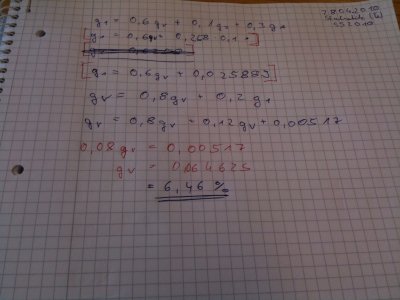 28.04.2010
SS2010
g₁ = 0,6gᵥ + 0,1g₁ + 0,3g₁
[g₁ = 0,6gᵥ + 0,258 · 0,1]
[g₁ = 0,6gᵥ + 0,02583]
gᵥ = 0,8gᵥ + 0,2g₁
gᵥ = 0,8gᵥ + 0,12gᵥ + 0,00517
0,08gᵥ = 0,00517
gᵥ = 0,064625
= 6,46 %